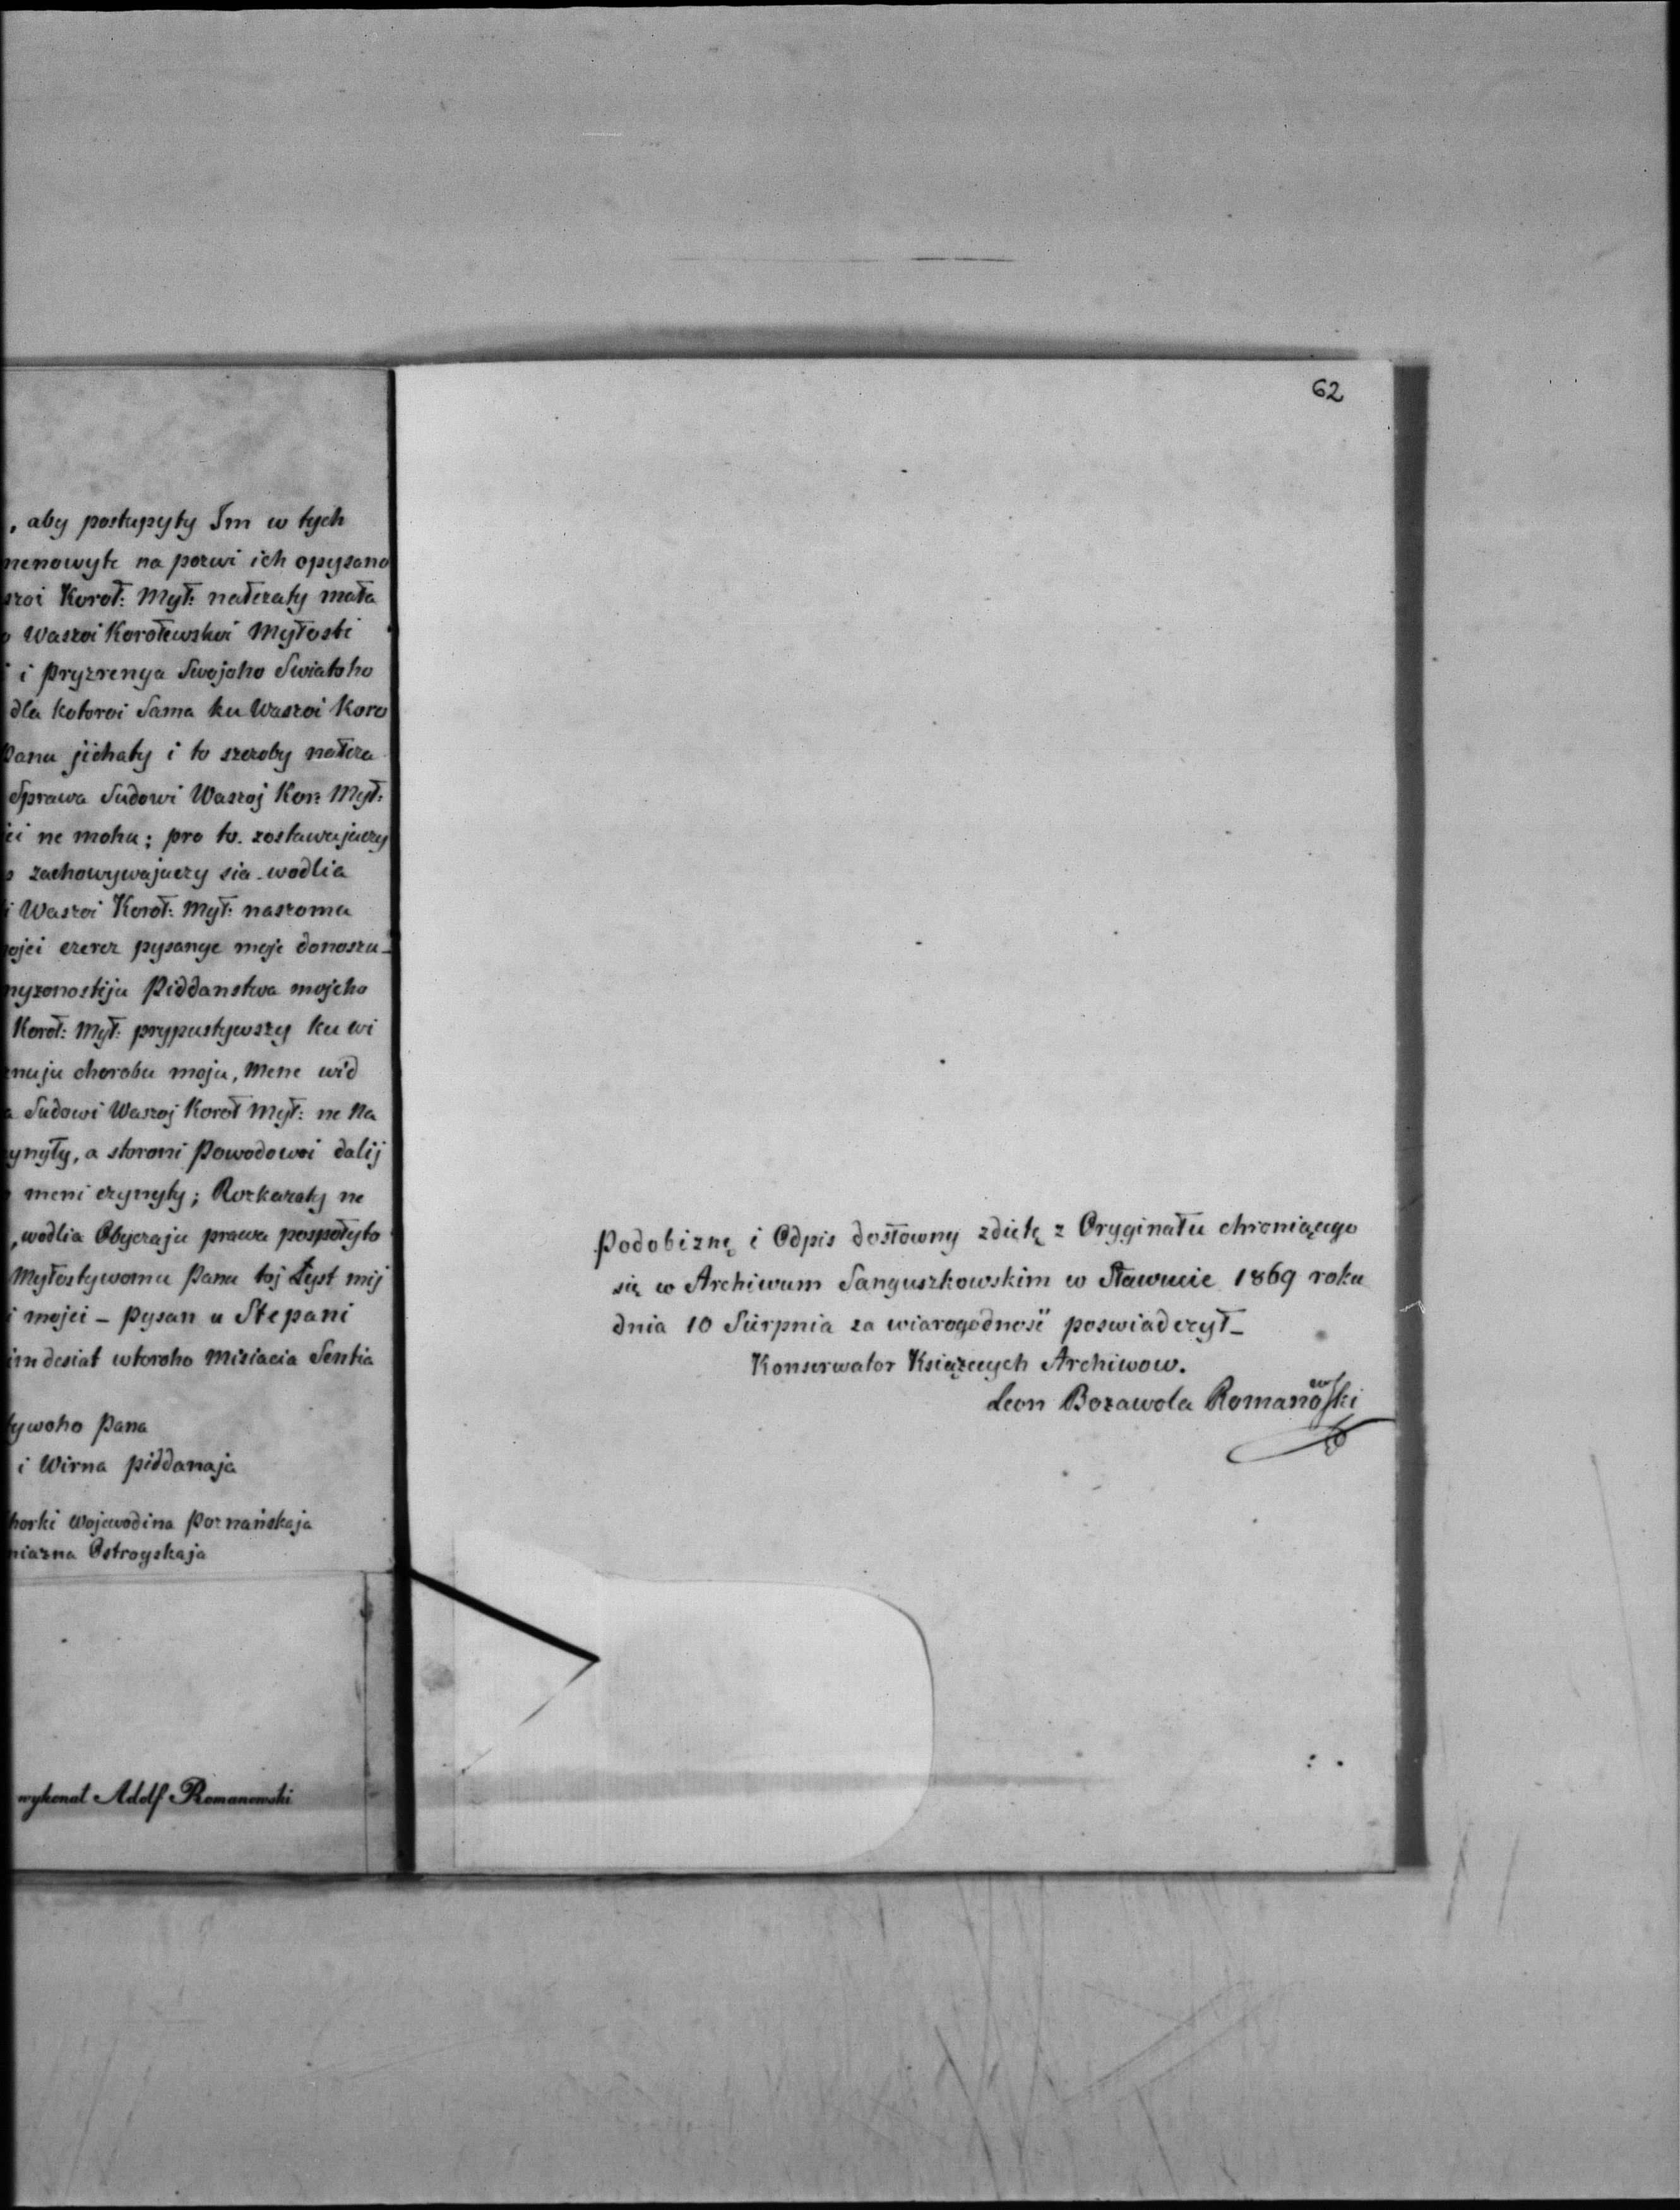 , aby postupyty Im w tych
menowyte na pozwi ich opysano
szoi Koroł: Mył: nałezaty mała
o Waszoi Korolewskoi Myłosti
i i Pryzrenya Swojoho Swiatoho
dla kotoroi Sama ku Waszoi Koro
Panu jichaty i to szczoby nałeza
Sprawa Sudowi Waszoj Kor: Mył:
jei ne mohu; pro to. zostawujuczy
o zachowywajuczy sia wodlia
i Waszoi Korol: Mył: naszomu
mojei czerez pysanye moje donoszu_
nyzonostiju Piddanstwa mojeho
Korol: Mył: prypustywszy ku wi
muju chorobu moju, Mene wid
a Sudowi Waszoj Korol Mył: ne Na
ynyły, a storoni Powodowoi dalij
o meni czynyty; Rozkazaty ne
, wodlia Obyczaju prawa pospołyto
Myłostywomu Panu toj Łyst mij
i mojei – Pysan u Stepani
im desiat wtoroho Misiacia Sentia
tywoho Pana
i Wirna piddanaja
horki Wojewodina Poznańskaja
niazna Ostrogskaja
wykonał Adolf Romanowski
62
Podobiznę i Odpis dosłowny zdiętę z Oryginału chroniącego
się w Archiwum Sanguszkowskim w Sławucie 1869 roku
dnia 10 Sierpnia za wiarogodność poswiadczył_
Konserwator Książęcych Archiwow.
Leon Bozawola Romanowski